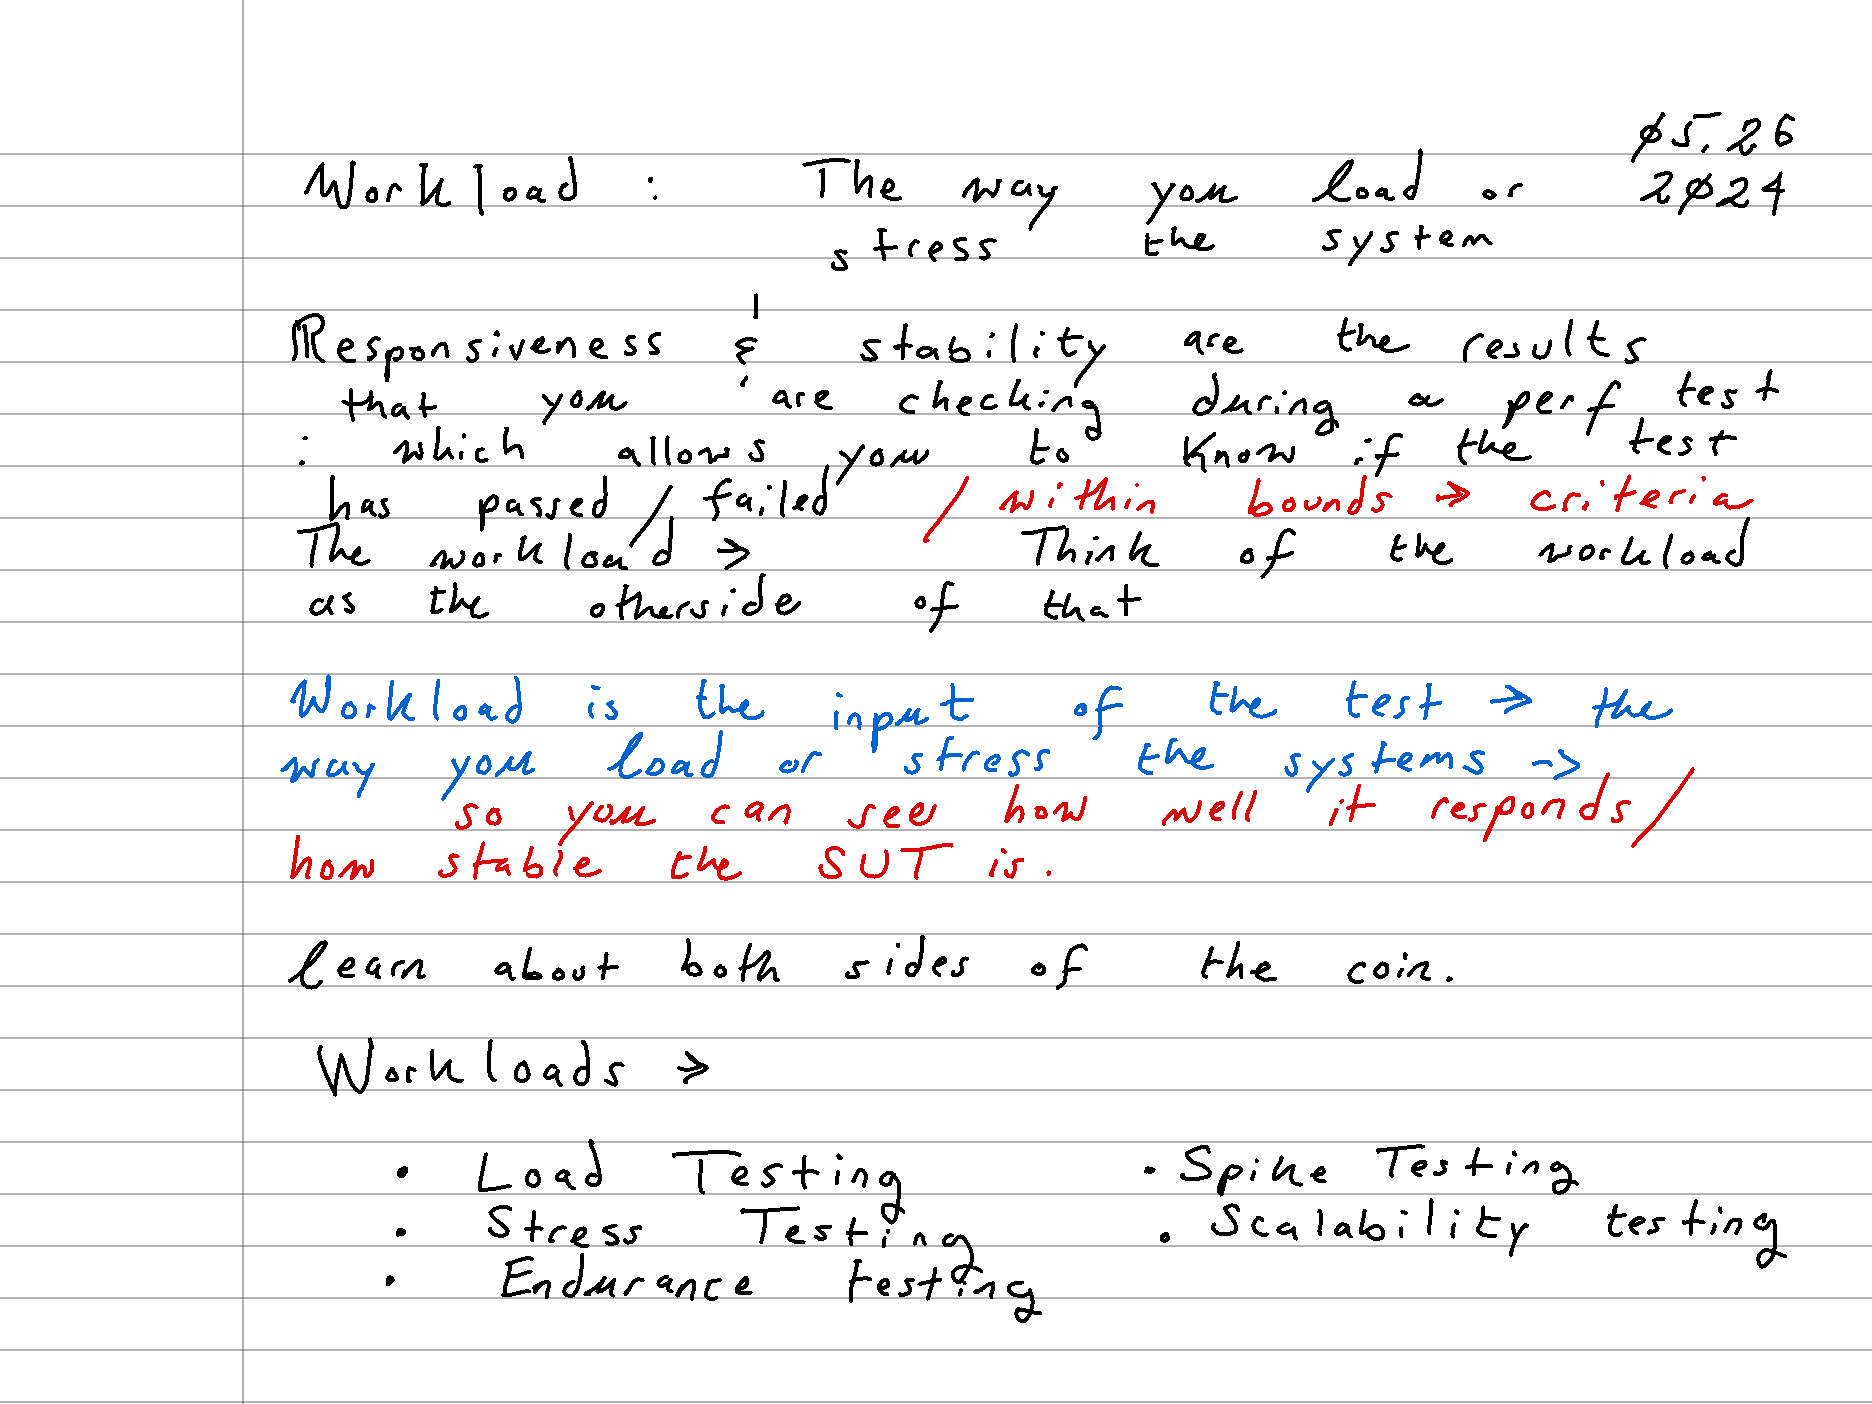 ø5.26
Workload : The way you load or 2ø24
stress the system
Responsiveness & stability are the results
that you are checking during a perf test
: which allows you to know if the test
has passed / failed / within bounds → criteria
The workload → Think of the workload
as the otherside of that
Workload is the input of the test → the
way you load or stress the systems ->
so you can see how well it responds /
how stable the SUT is.
learn about both sides of the coin.
Workloads →
• Load Testing • Spike Testing
• Stress Testing • Scalability testing
• Endurance testing